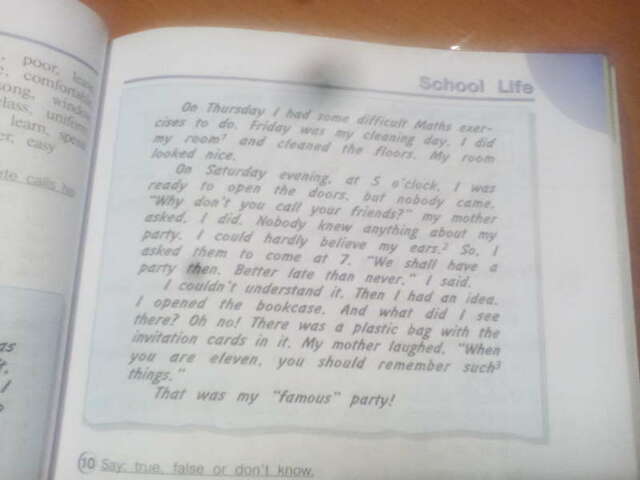 poor, learn,
comfortable,
song, window
class, uniform
learn, speak
er, easy
School Life
On Thursday I had some difficult Maths exer-
cises to do. Friday was my cleaning day. I did
my room¹ and cleaned the floors. My room
looked nice.
On Saturday evening, at 5 o'clock, I was
ready to open the doors, but nobody came.
"Why don't you call your friends?" my mother
asked. I did. Nobody knew anything about my
party. I could hardly believe my ears.² So, I
asked them to come at 7. "We shall have a
party then. Better late than never," I said.
I couldn't understand it. Then I had an idea.
I opened the bookcase. And what did I see
there? Oh no! There was a plastic bag with the
invitation cards in it. My mother laughed, "When
you are eleven, you should remember such³
things."
That was my "famous" party!
10 Say: true, false or don't know.